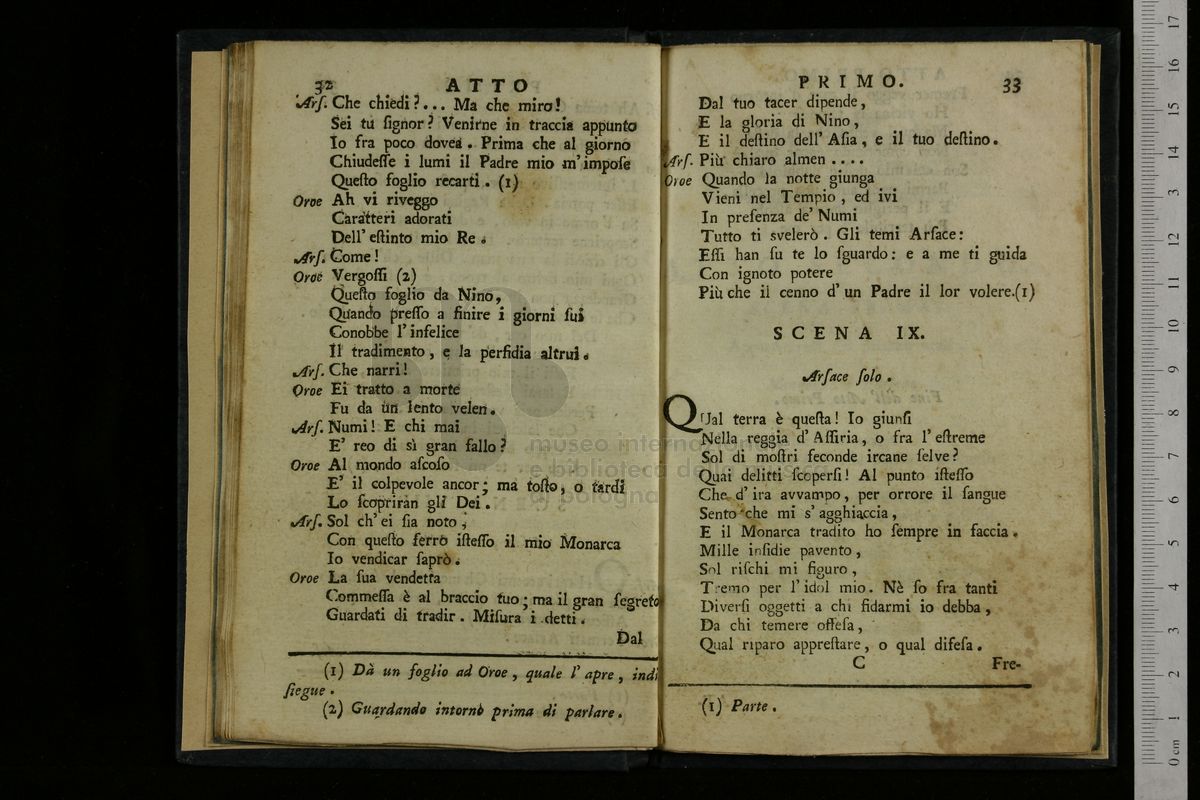 32 ATTO
Arſ. Che chiedi?... Ma che miro!
Sei tu ſignor? Venirne in traccia appunto
Io fra poco dovea. Prima che al giorno
Chiudeſſe i lumi il Padre mio m'impoſe
Queſto foglio recarti. (1)
Oroe Ah vi riveggo
Caratteri adorati
Dell' eſtinto mio Re.
Arſ. Come!
Oroe Vergoſſi (2)
Queſto foglio da Nino,
Quando preſſo a finire i giorni ſui
Conobbe l'infelice
Il tradimento, e la perfidia altrui.
Arſ. Che narri!
Oroe Ei tratto a morte
Fu da un lento velen.
Arſ. Numi! E chi mai
E' reo di sì gran fallo?
Oroe Al mondo aſcoſo
E' il colpevole ancor; ma toſto, o tardi
Lo ſcopriran gli Dei.
Arſ. Sol ch'ei ſia noto;
Con queſto ferro iſteſſo il mio Monarca
Io vendicar ſaprò.
Oroe La ſua vendetta
Commeſſa è al braccio tuo; ma il gran ſegreto
Guardati di tradir. Miſura i detti.
Dal
(1) Dà un foglio ad Oroe, quale l'apre, indi
ſiegue.
(2) Guardando intorno prima di parlare.
PRIMO. 33
Dal tuo tacer dipende,
E la gloria di Nino,
E il deſtino dell' Aſia, e il tuo deſtino.
Arſ. Più chiaro almen ....
Oroe Quando la notte giunga
Vieni nel Tempio, ed ivi
In preſenza de' Numi
Tutto ti svelerò. Gli temi Arſace:
Eſſi han ſu te lo ſguardo: e a me ti guida
Con ignoto potere
Più che il cenno d'un Padre il lor volere.(1)
SCENA IX.
Arſace ſolo.
QUal terra è queſta! Io giunſi
Nella reggia d'Aſſiria, o fra l'eſtreme
Sol di moſtri feconde ircane ſelve?
Quai delitti ſcoperſi! Al punto iſteſſo
Che d'ira avvampo, per orrore il ſangue
Sento che mi s'agghiaccia,
E il Monarca tradito ho ſempre in faccia.
Mille inſidie pavento,
Sol riſchi mi figuro,
Tremo per l'idol mio. Nè ſo fra tanti
Diverſi oggetti a chi fidarmi io debba,
Da chi temere offeſa,
Qual riparo appreſtare, o qual difeſa.
C Fre-
(1) Parte.
museo internazionale
e biblioteca della musica
di bologna